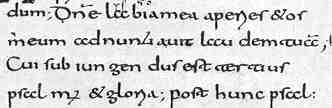 dum; Dñe labia mea aperies & os
meum adnuntiavit laudem tuā,
Cui subiungendus est tertius
psal mus & gloria; post hunc psal: